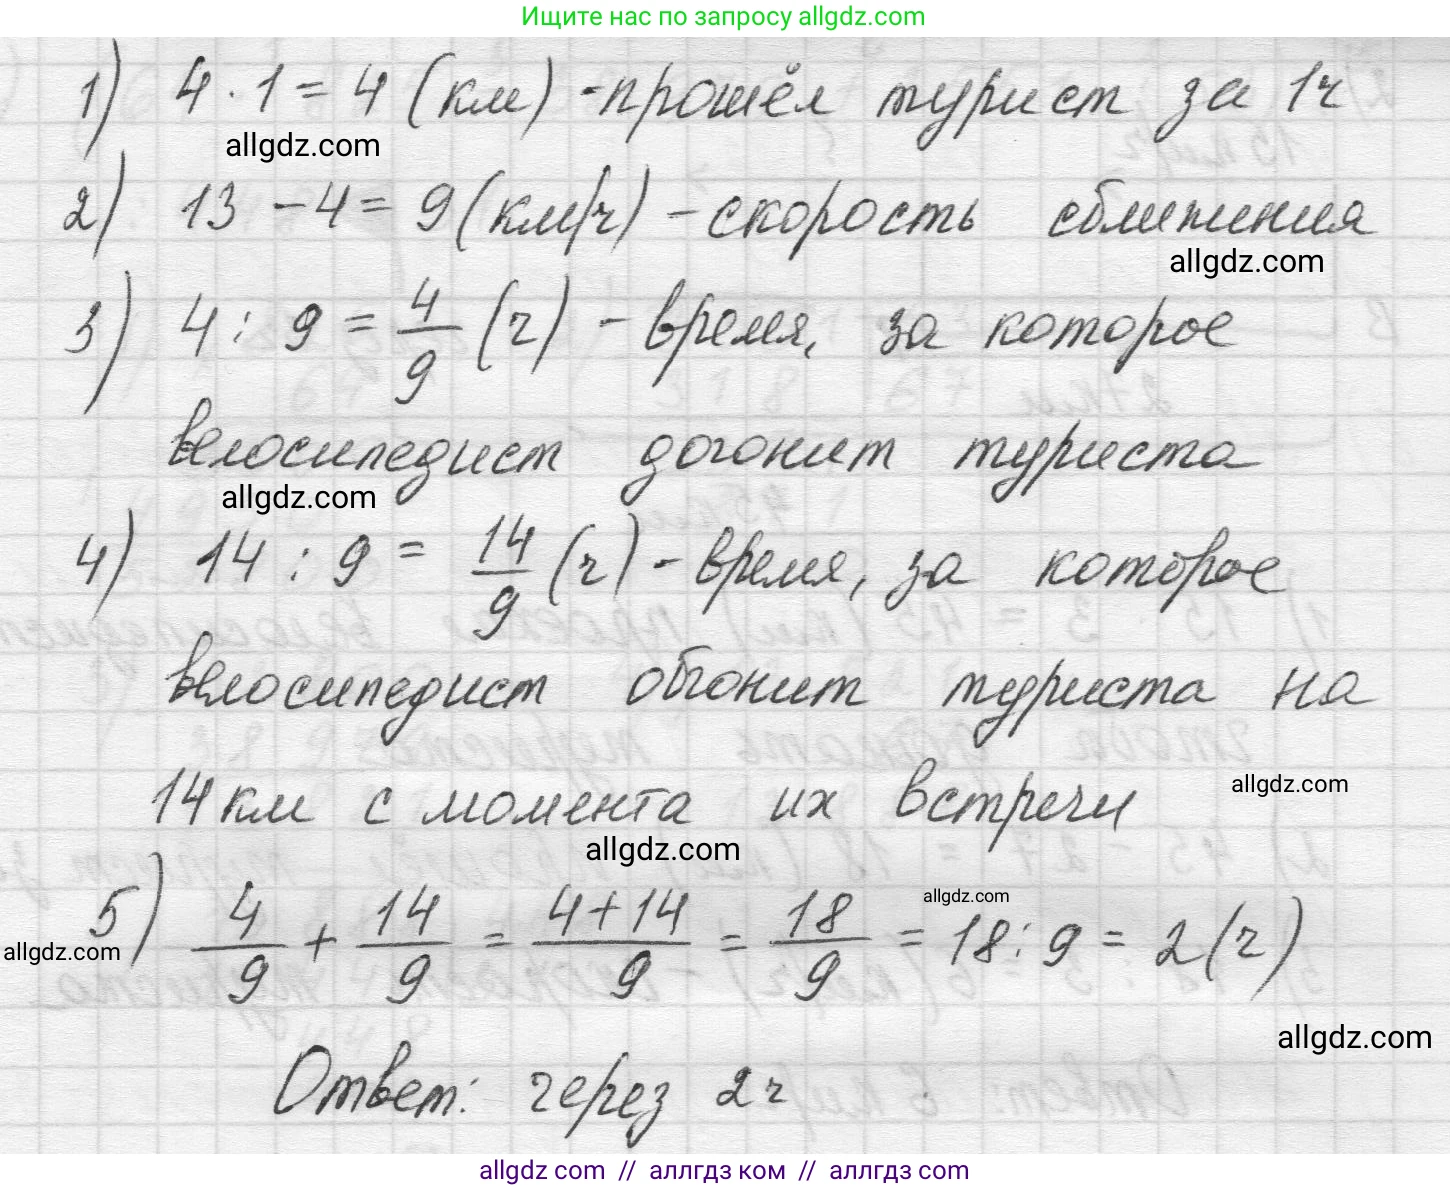 Ищите нас по запросу allgdz.com
1) 4 · 1 = 4 (км) - прошёл турист за 1ч
allgdz.com
2) 13 - 4 = 9 (км/ч) - скорость сближения
allgdz.com
3) 4 : 9 = 4/9 (ч) - время, за которое
велосипедист догонит туриста
allgdz.com
4) 14 : 9 = 14/9 (ч) - время, за которое
велосипедист обгонит туриста на
allgdz.com
14 км с момента их встречи
allgdz.com
allgdz.com
5) 4/9 + 14/9 = (4+14)/9 = 18/9 = 18 : 9 = 2 (ч)
allgdz.com
allgdz.com
Ответ: через 2ч
allgdz.com // аллгдз ком // аллгдз.com